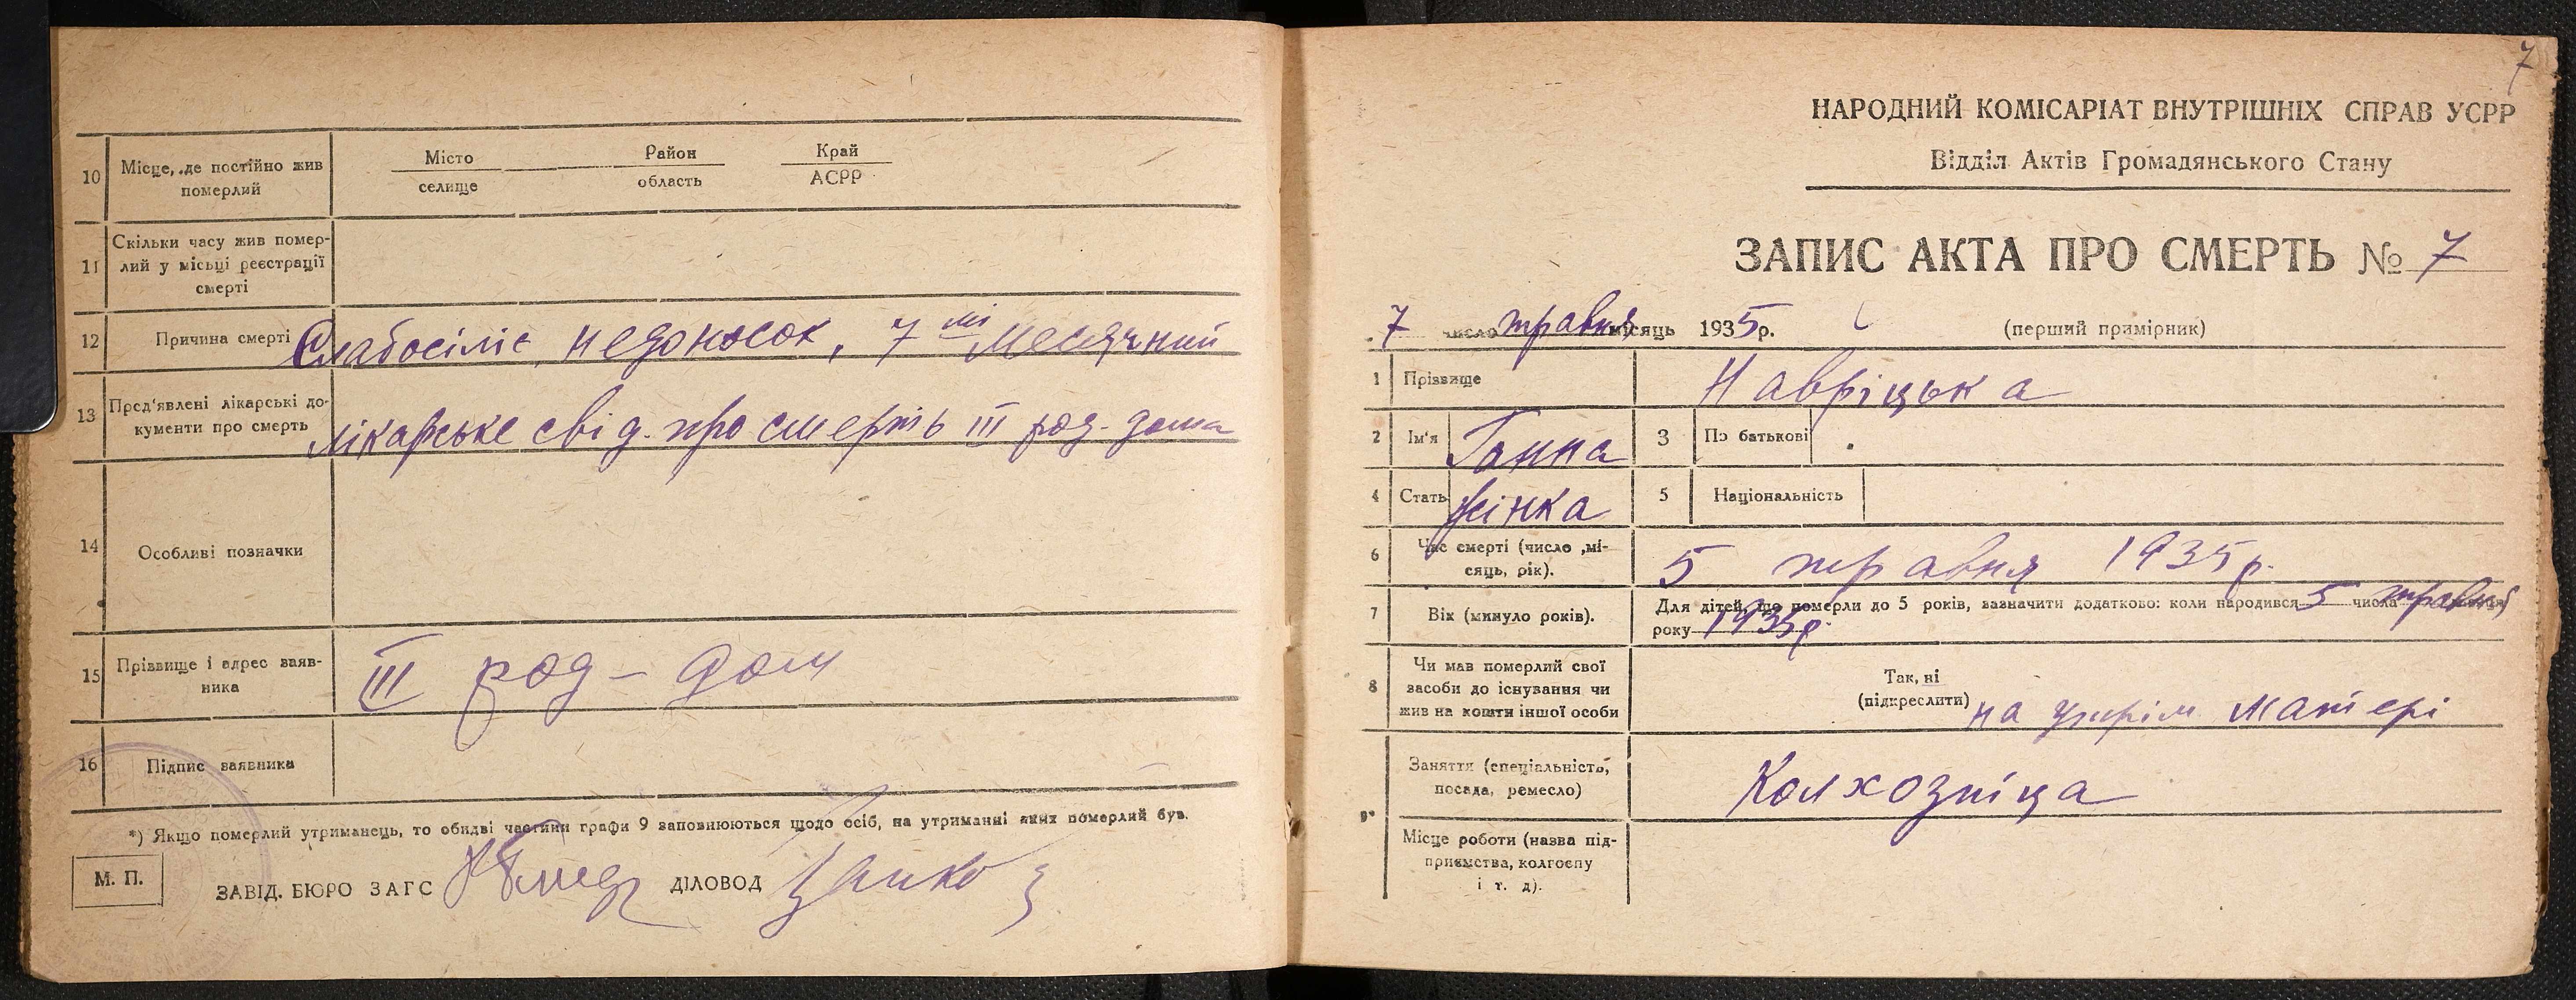 10
Місце, де постійно жив
померлий
Місто
селище
Район
область
Край
АСРР
11
Скільки часу жив помер-
лий у місьці реєстрації
смерті
12
Причина смерті
Слабосіліє, недоносок, 7 мі месячний
13
Пред'явлені лікарські до-
кументи про смерть
лікарське свід. про смерть III род-дома
14
Особливі позначки
15
Прізвище і адрес заяв-
ника
III род-дом
16
Підпис заявника
*) Якщо померлий утриманець, то обидві частини графи 9 заповнюються щодо осіб, на утриманні яких померлий був.
М. П.
ЗАВІД. БЮРО ЗАГС
ДІЛОВОД
7
НАРОДНИЙ КОМІСАРІАТ ВНУТРІШНІХ СПРАВ УСРР
Відділ Актів Громадянського Стану
ЗАПИС АКТА ПРО СМЕРТЬ № 7
7 число травня місяць 1935р. (перший примірник)
1
Прізвище
Навріцька
2
Ім'я
Ганна
3
По батькові
4
Стать
жінка
5
Національність
6
Час смерті (число ,мі-
сяць, рік).
5 травня 1935р.
7
Вік (минуло років).
Для дітей, що померли до 5 років, зазначити додатково: коли народився 5 числа травня
року 1935р.
8
Чи мав померлий свої
засоби до існування чи
жив на кошти іншої особи
Так, ні
(підкреслити) на утрім матері
9*
Заняття (спеціальність,
посада, ремесло)
Колхозніца
Місце роботи (назва під-
приємства, колгоспу
і т. д).